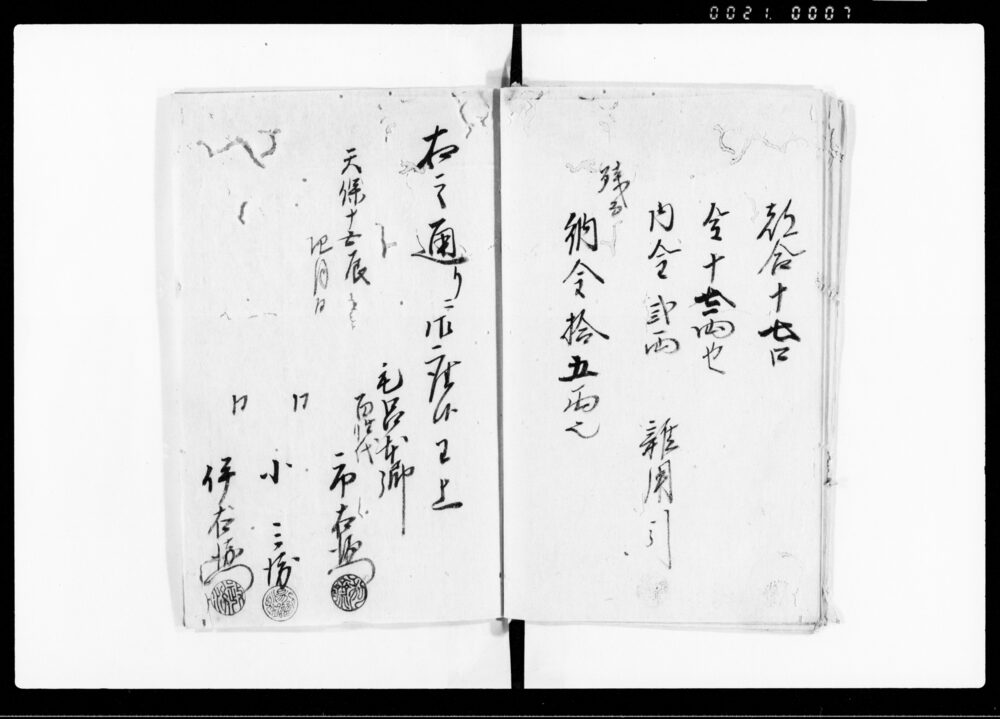 0021. 0007
都合十七口
金十七両也
内金弐両 雑用引
残而
納金拾五両也
右之通り二御座候以上
天保十五辰とし
四月日
毛呂本郷
百姓代
市右衛門
同 小三郎
同 伊右衛門